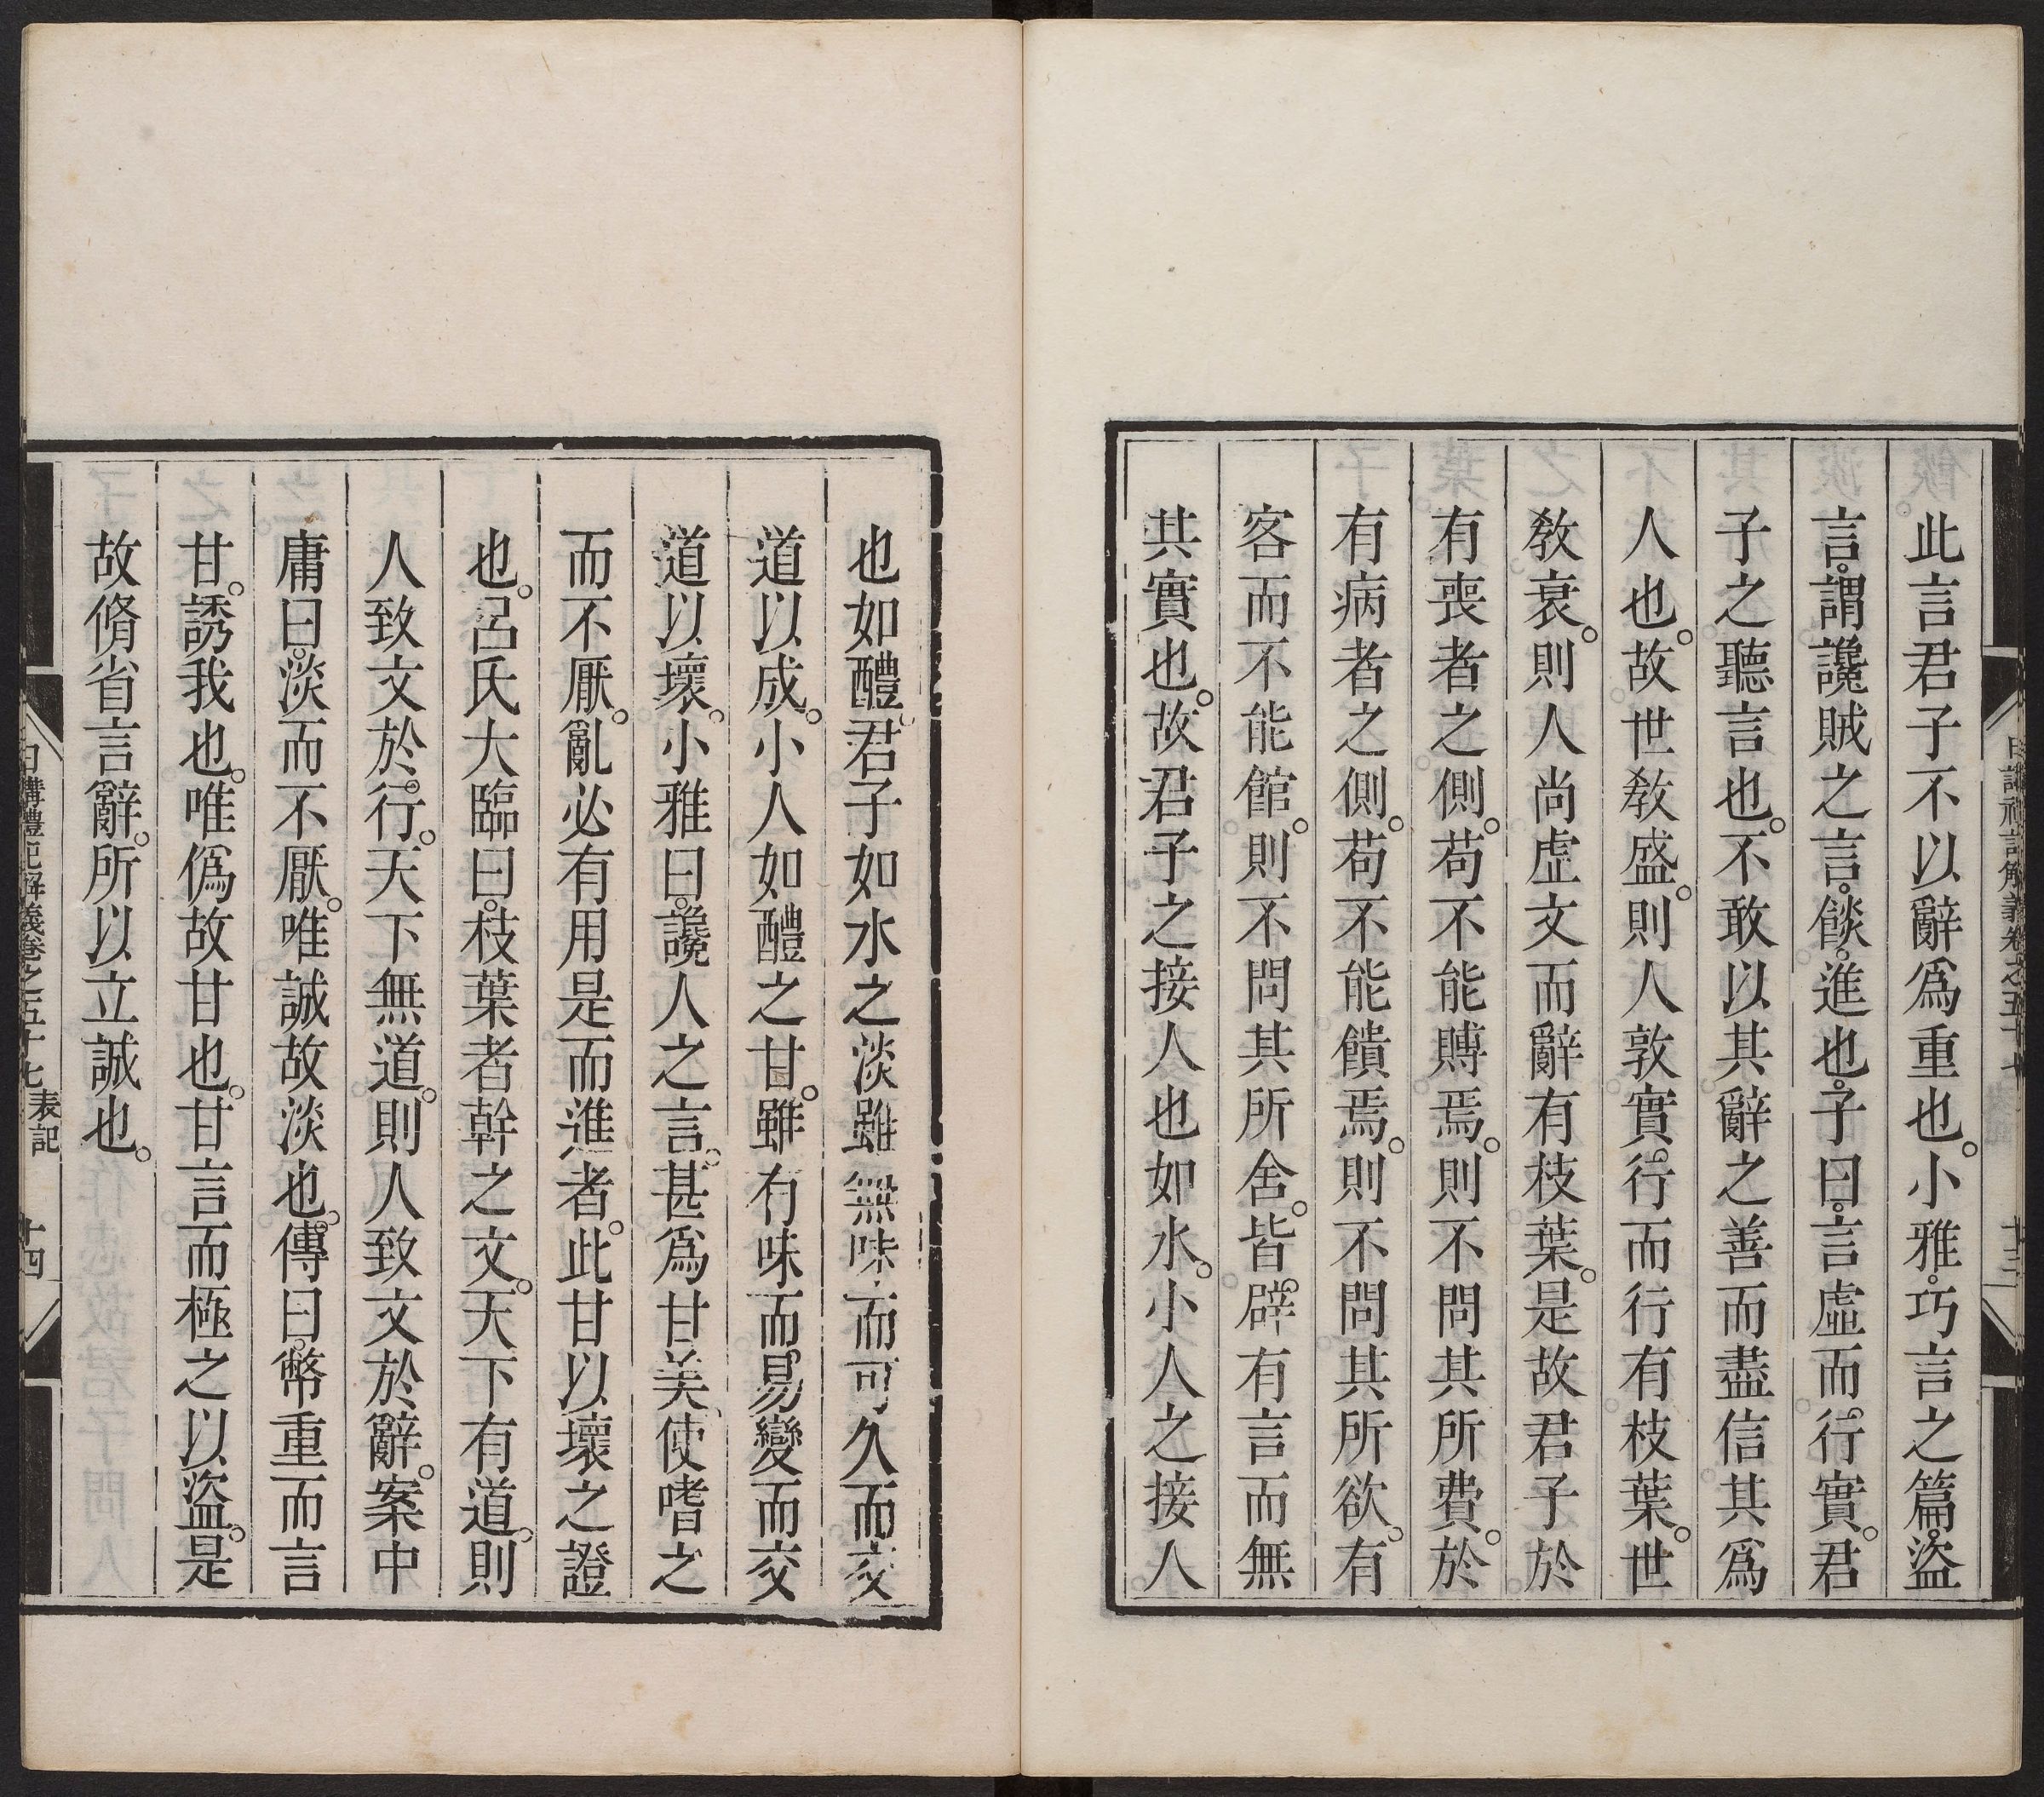 此言君子不以辭爲重也。小雅。巧言之篇。盜
言。謂讒賊之言。餤。進也。子曰。言虛而行實。君
子之聽言也。不敢以其辭之善而盡信其爲
人也。故世敎盛。則人敦實。行而行有枝葉。世
敎衰。則人尚虛文而辭有枝葉。是故君子於
有喪者之側。苟不能賻焉。則不問其所費。於
有病者之側。苟不能饋焉。則不問其所欲。有
客而不能館。則不問其所舍。皆。辟有言而無
其實也。故君子之接人也如水。小人之接人
日講禮記解義卷之五十七
十三
也如醴。君子如水之淡雖無味而可久而交
道以成。小人如醴之甘。雖有味而易變而交
道以壞。小雅曰。讒人之言。甚爲甘美使嗜之
而不厭。亂必有用是而進者。此甘以壞之證
也。呂氏大臨曰。枝葉者幹之文。天下有道。則
人致文於。行。天下無道。則人致文於辭。案中
庸曰。淡而不厭。唯誠故淡也。傳曰。幣重而言
甘。誘我也。唯僞故甘也。甘言而極之以盜。是
故脩省言辭。所以立誠也。
日講禮記解義卷之五十七 表記
十四